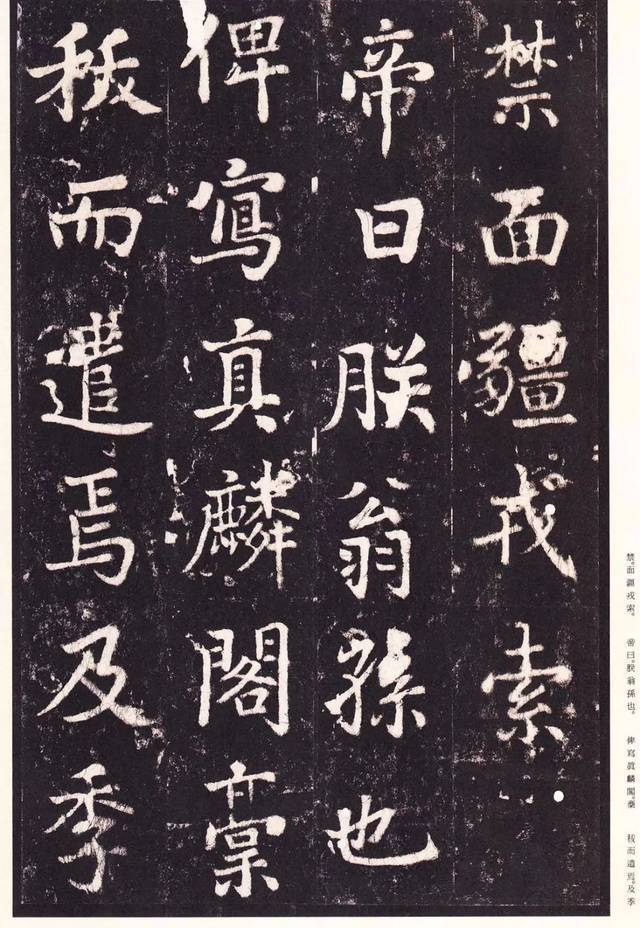 禁面疆戎索
帝曰朕翁孫也
俾寫真麟閣
秡而遣焉及季
禁。面疆戎索。 帝曰。朕翁孫也。 俾寫眞麟閣。 秡而遣焉。及季